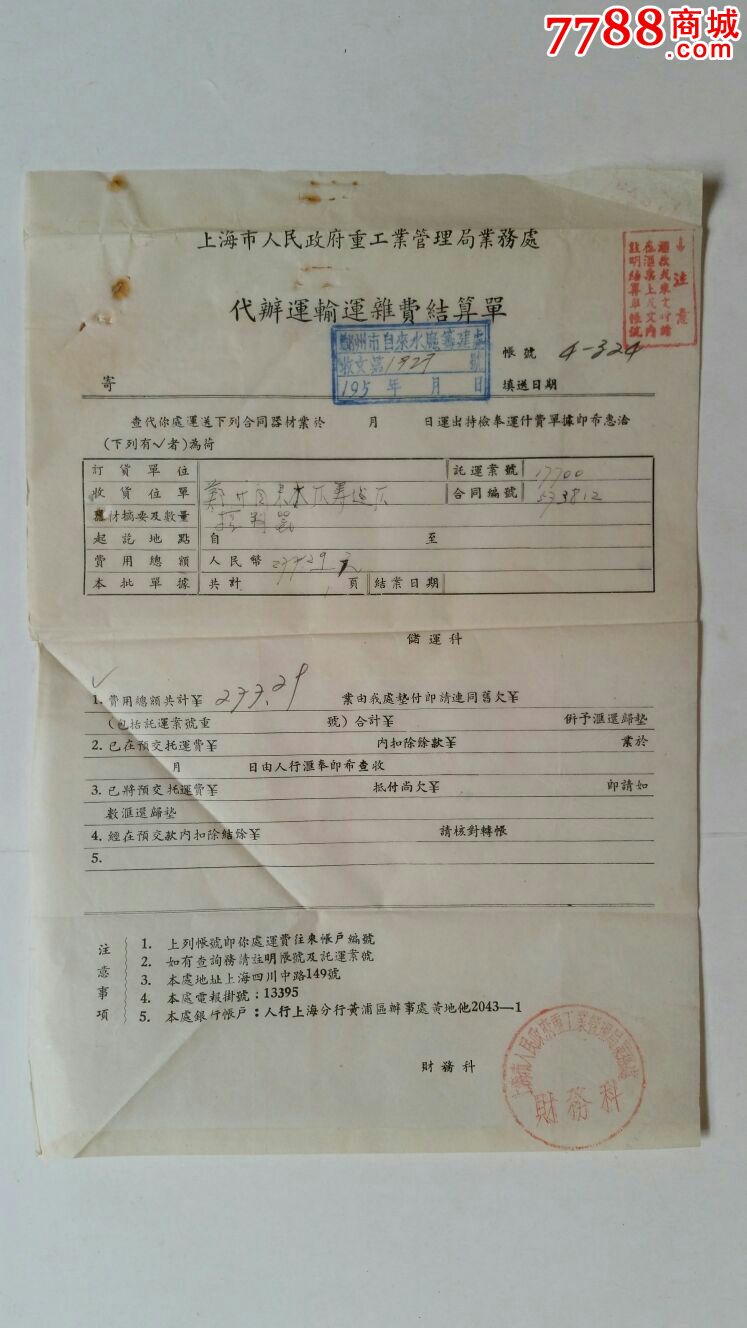 7788商城
.com
上海市人民政府重工業管理局業務處
代辦運輸運雜費結算單
注意
鄭州市自來水廠籌建處
收文第1929號
195 年 月 日
帳號 4-324
寄
填送日期
查代你處運送下列合同器材業於 月 日運出持檢奉運什費單據即希惠洽
(下列有✓者)為荷
訂貨單位 託運業號 17700
收貨位單 合同編號 533812
器材摘要及數量
起訖地點 自 至
費用總額 人民幣 元
本批單據 共計 1 頁 結業日期
儲運科
✓
1. 費用總額共計¥ 233.29 業由我處墊付即請連同舊欠¥
(包括託運業號重 號)合計¥ 併予滙還歸墊
2. 已在預交托運費¥ 內扣除餘款¥ 業於
月 日由人行滙奉即希查收
3. 已將預交托運費¥ 抵付尚欠¥ 即請如
數滙還歸墊
4. 經在預交款內扣除結餘¥ 請核對轉帳
5.
注意事項
1. 上列帳號即你處運費往來帳戶編號
2. 如有查詢務請註明帳號及託運業號
3. 本處地址上海四川中路149號
4. 本處電報掛號：13395
5. 本處銀行帳戶：人行上海分行黃浦區辦事處黃地他2043—1
財務科
財務科